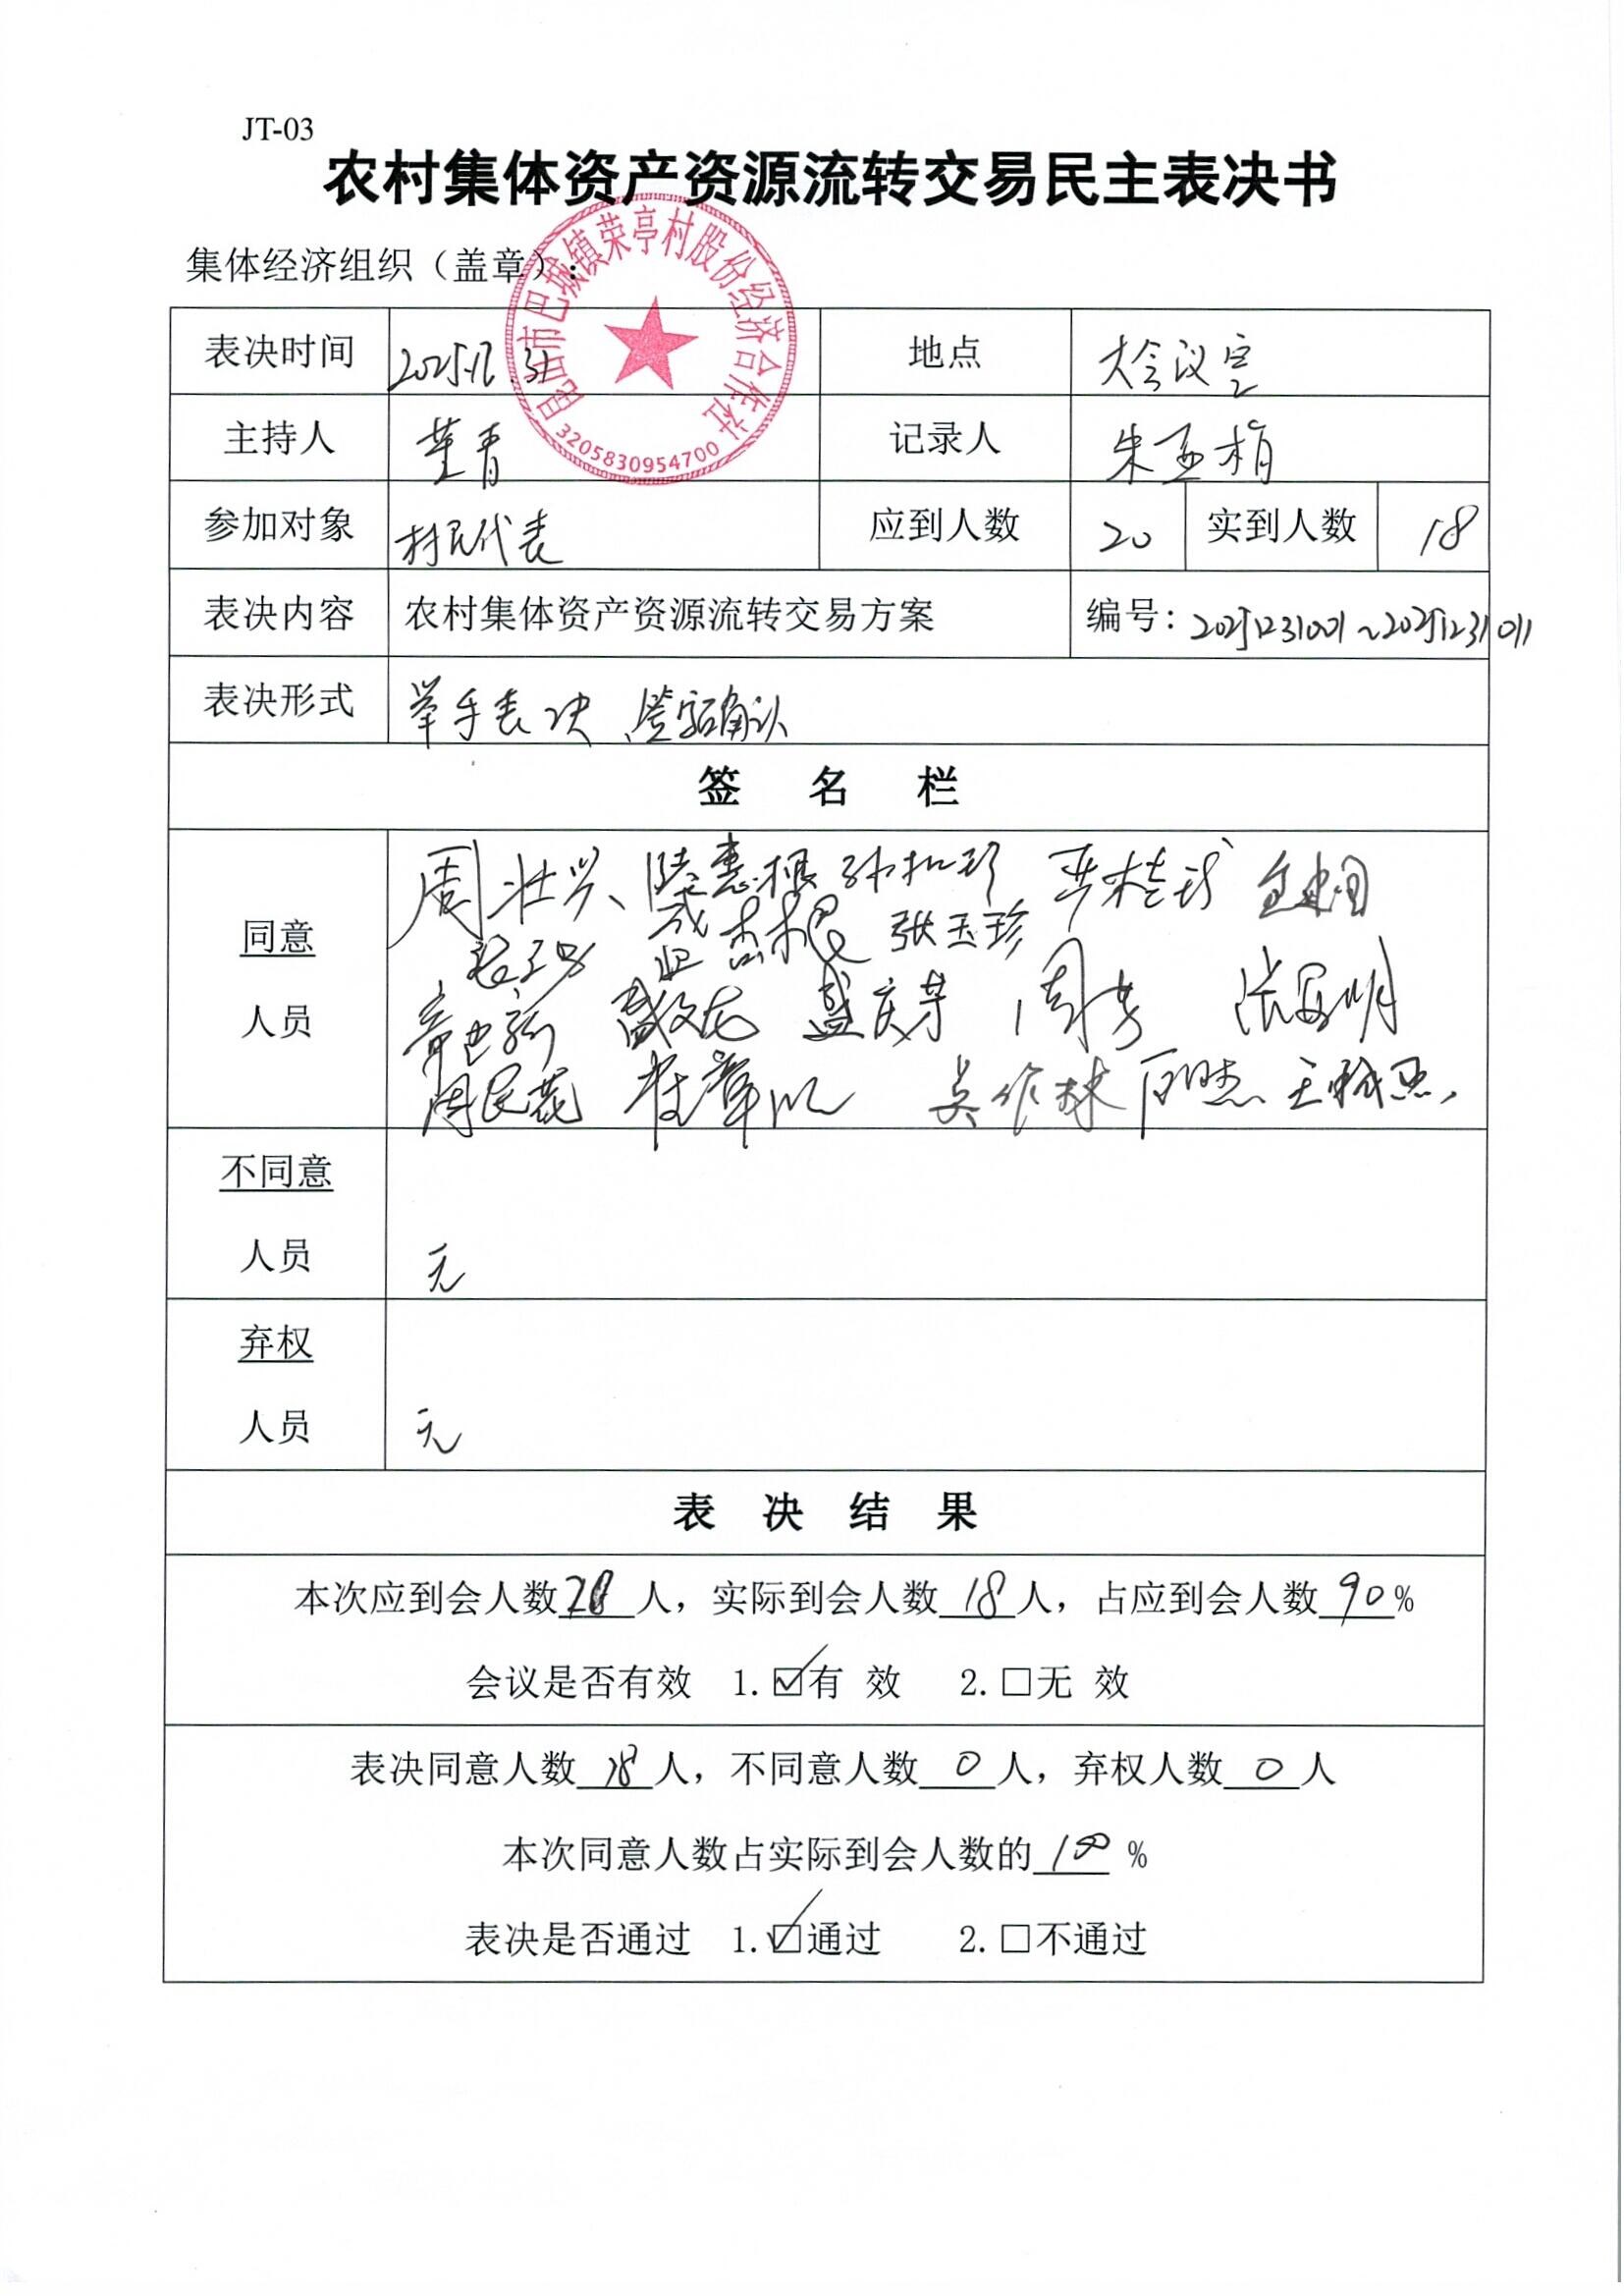 JT-03
农村集体资产资源流转交易民主表决书
集体经济组织（盖章）：
昆山市巴城镇荣亭村股份经济合作社
3205830954700
表决时间 2025.12.31 地点 大会议室
主持人 董青 记录人 朱亚娟
参加对象 村民代表 应到人数 20 实到人数 18
表决内容 农村集体资产资源流转交易方案 编号：20251231001~20251231011
表决形式 举手表决、签字确认
签 名 栏
同意
人员
周壮兴、陆惠根
杏根 张玉珍
盛文龙 盛庆芳 周芳
周民花 吴作林
不同意
人员 无
弃权
人员 无
表 决 结 果
本次应到会人数20人，实际到会人数18人，占应到会人数90%
会议是否有效 1.☑有 效 2.□无 效
表决同意人数18人，不同意人数0人，弃权人数0人
本次同意人数占实际到会人数的100%
表决是否通过 1.☑通过 2.□不通过